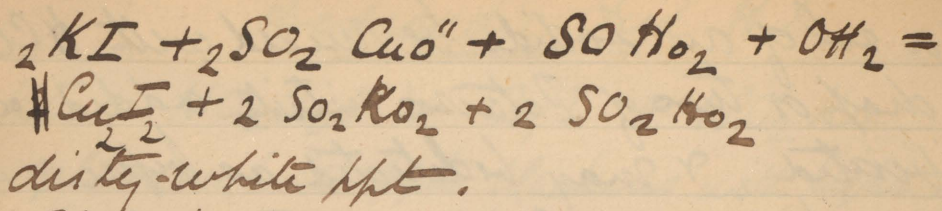 ₂KI + ₂SO₂ Cuo" + SO Ho₂ + OH₂ =
Cu₂I₂ + 2 SO₂Ko₂ + 2 SO₂Ho₂
dirty-white ppt.